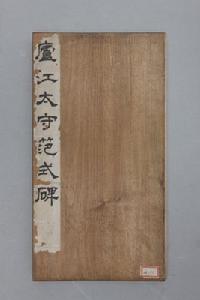 廬江太守范式碑